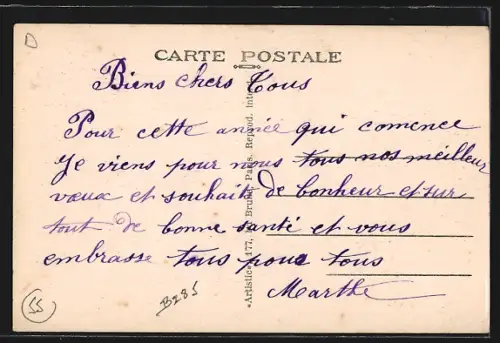 D
CARTE POSTALE
Biens chers Tous
Pour cette année qui comence
Je viens pour nous tous nos meilleur
vœux et souhait de bonheur et sur
tout de bonne santé et vous
embrasse tous pour tous
Marthe
55
B285
"Artistic" 177, Brune, Paris. Reprod. inter